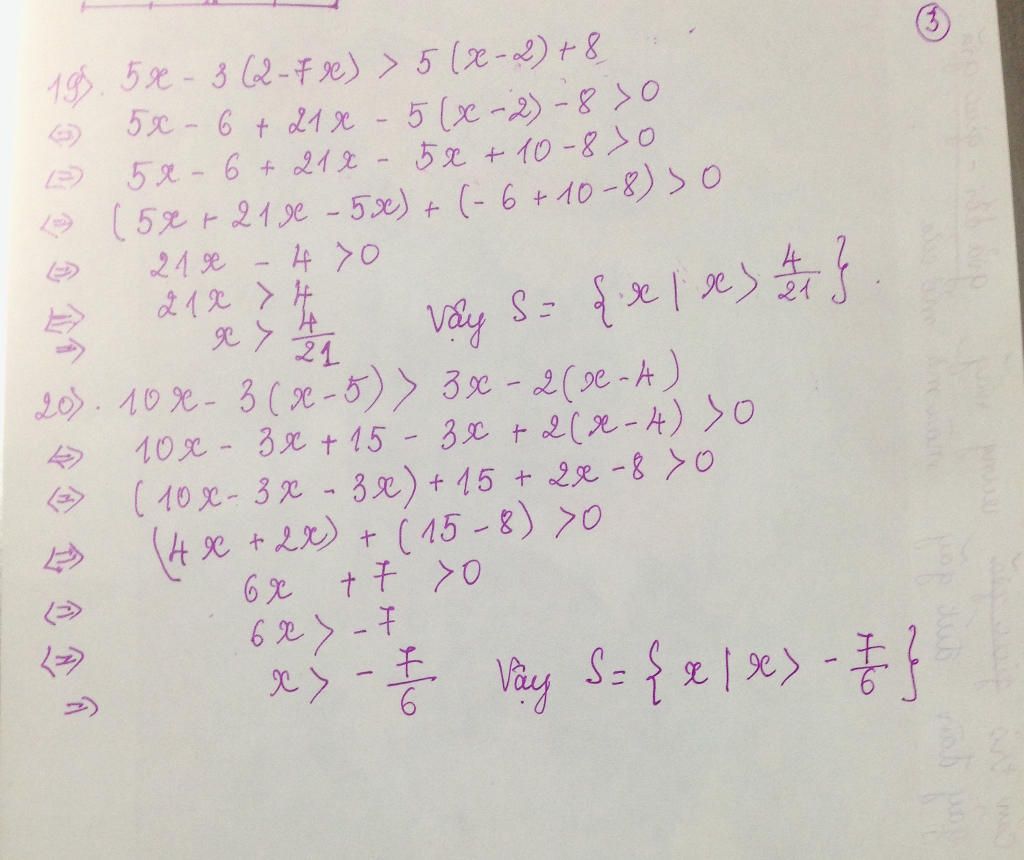 ③
19). 5x - 3(2-7x) > 5(x-2) + 8
⇔ 5x - 6 + 21x - 5(x-2) - 8 > 0
⇔ 5x - 6 + 21x - 5x + 10 - 8 > 0
⇔ (5x + 21x - 5x) + (-6 + 10 - 8) > 0
⇔ 21x - 4 > 0
⇔ 21x > 4
⇒ x > 4/21 Vậy S = {x | x > 4/21}.
20). 10x - 3(x-5) > 3x - 2(x-4)
⇔ 10x - 3x + 15 - 3x + 2(x-4) > 0
⇔ (10x - 3x - 3x) + 15 + 2x - 8 > 0
⇔ (4x + 2x) + (15 - 8) > 0
⇔ 6x + 7 > 0
⇔ 6x > -7
⇒ x > -7/6 Vậy S = {x | x > -7/6}